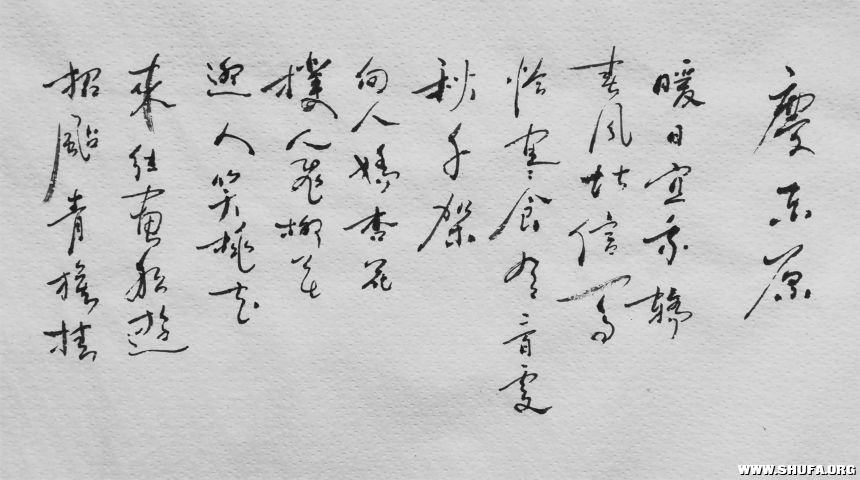 慶东原
暖日宜乘轎
春风堪信馬
恰寒食有二百處
秋千架
向人嬌杏花
撲人飛柳花
迎人笑桃花
來往畫船遊
招颭青旗挂
WWW.SHUFA.ORG